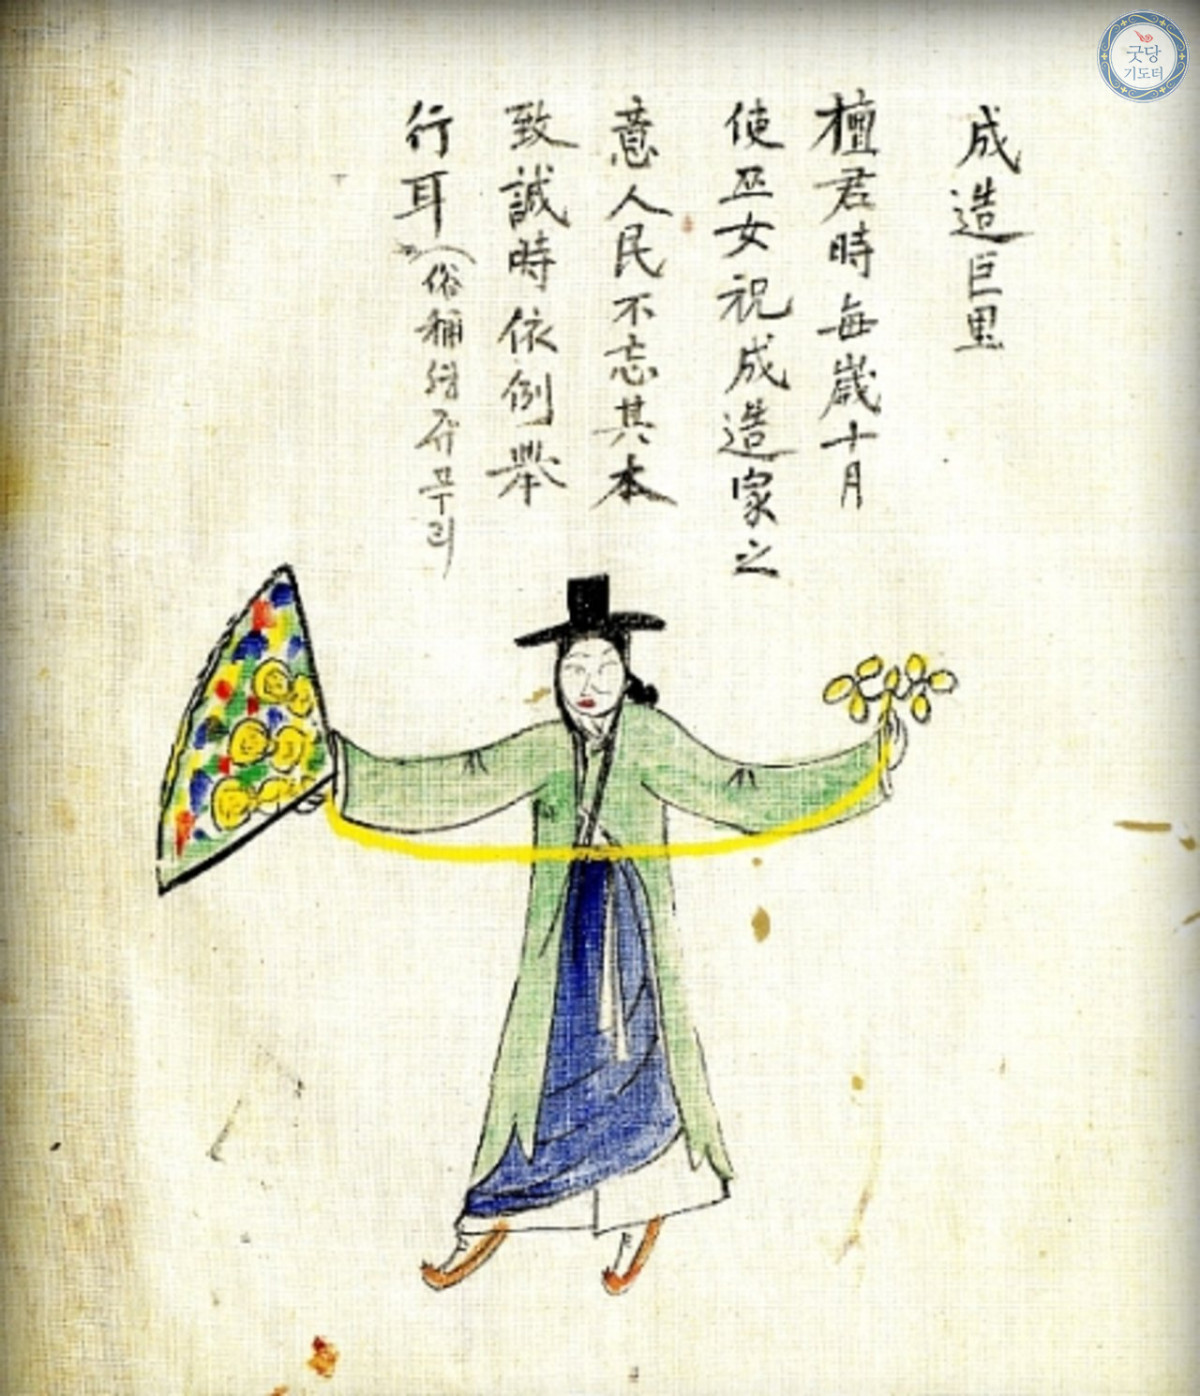 굿당
기도터
成造巨里
檀君時每歲十月
使巫女祝成造家之
意人民不忘其本
致誠時依例擧
行耳(俗稱셩쥬푸리